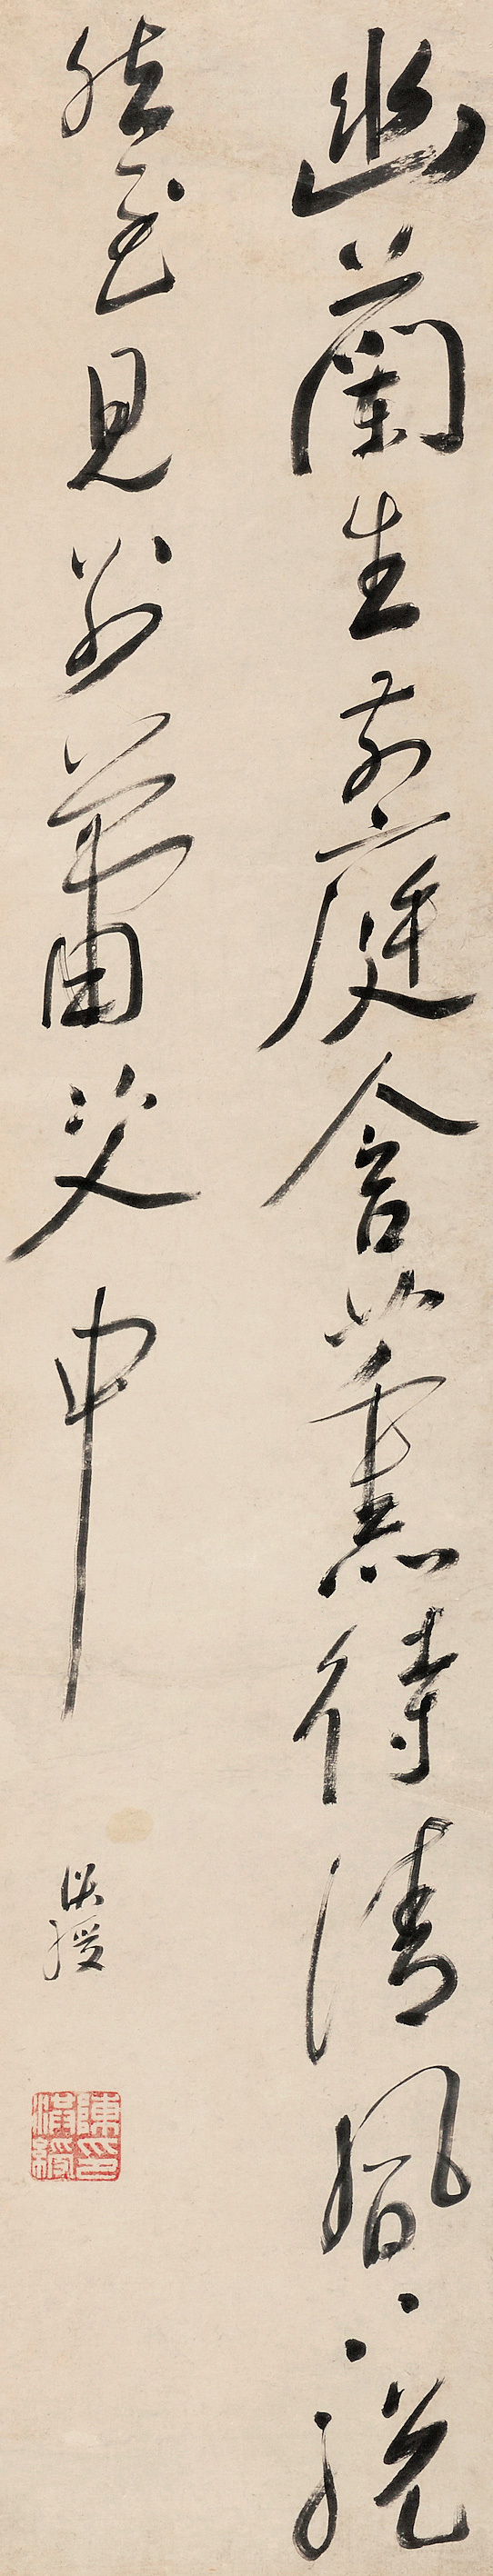 幽蘭生前庭含薰待清風〻脫
然至見別蕭艾中
洪綬
陳印洪綬